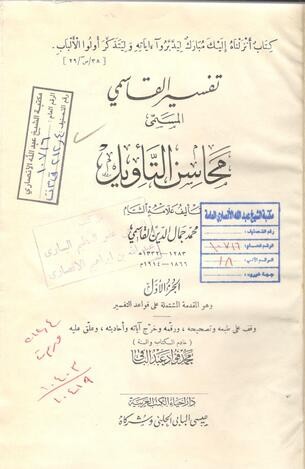 كِتَابٌ أَنزَلْنَاهُ إِلَيْكَ مُبَارَكٌ لِيَدَّبَّرُوا ءَايَاتِهِ وَلِيَتَذَكَّرَ أُولُوا الْأَلْبَابِ.
[٣٨/ص/٢٩]
تفسير القاسمي
المسمى
محاسن التأويل
تأليف علامة الشام
محمد جمال الدين القاسمي
١٢٨٣-١٣٣٢هـ
١٨٦٦-١٩١٤م
الجزء الأول
وهو المقدمة المشتملة على قواعد التفسير
وقف على طبعه وتصحيحه، ورقمه وخرّج آياته وأحاديثه، وعلق عليه
( خادم الكتاب والسنة )
محمد فؤاد عبد الباقي
دار إحياء الكتب العربية
عيسى البابي الحلبي وشركاه
مكتبة الشيخ عبد الله الأنصاري
الرقم العام:
رقم التصنيف:
مكتبة الشيخ عبد الله الأنصاري العامة
رقم التصنيف